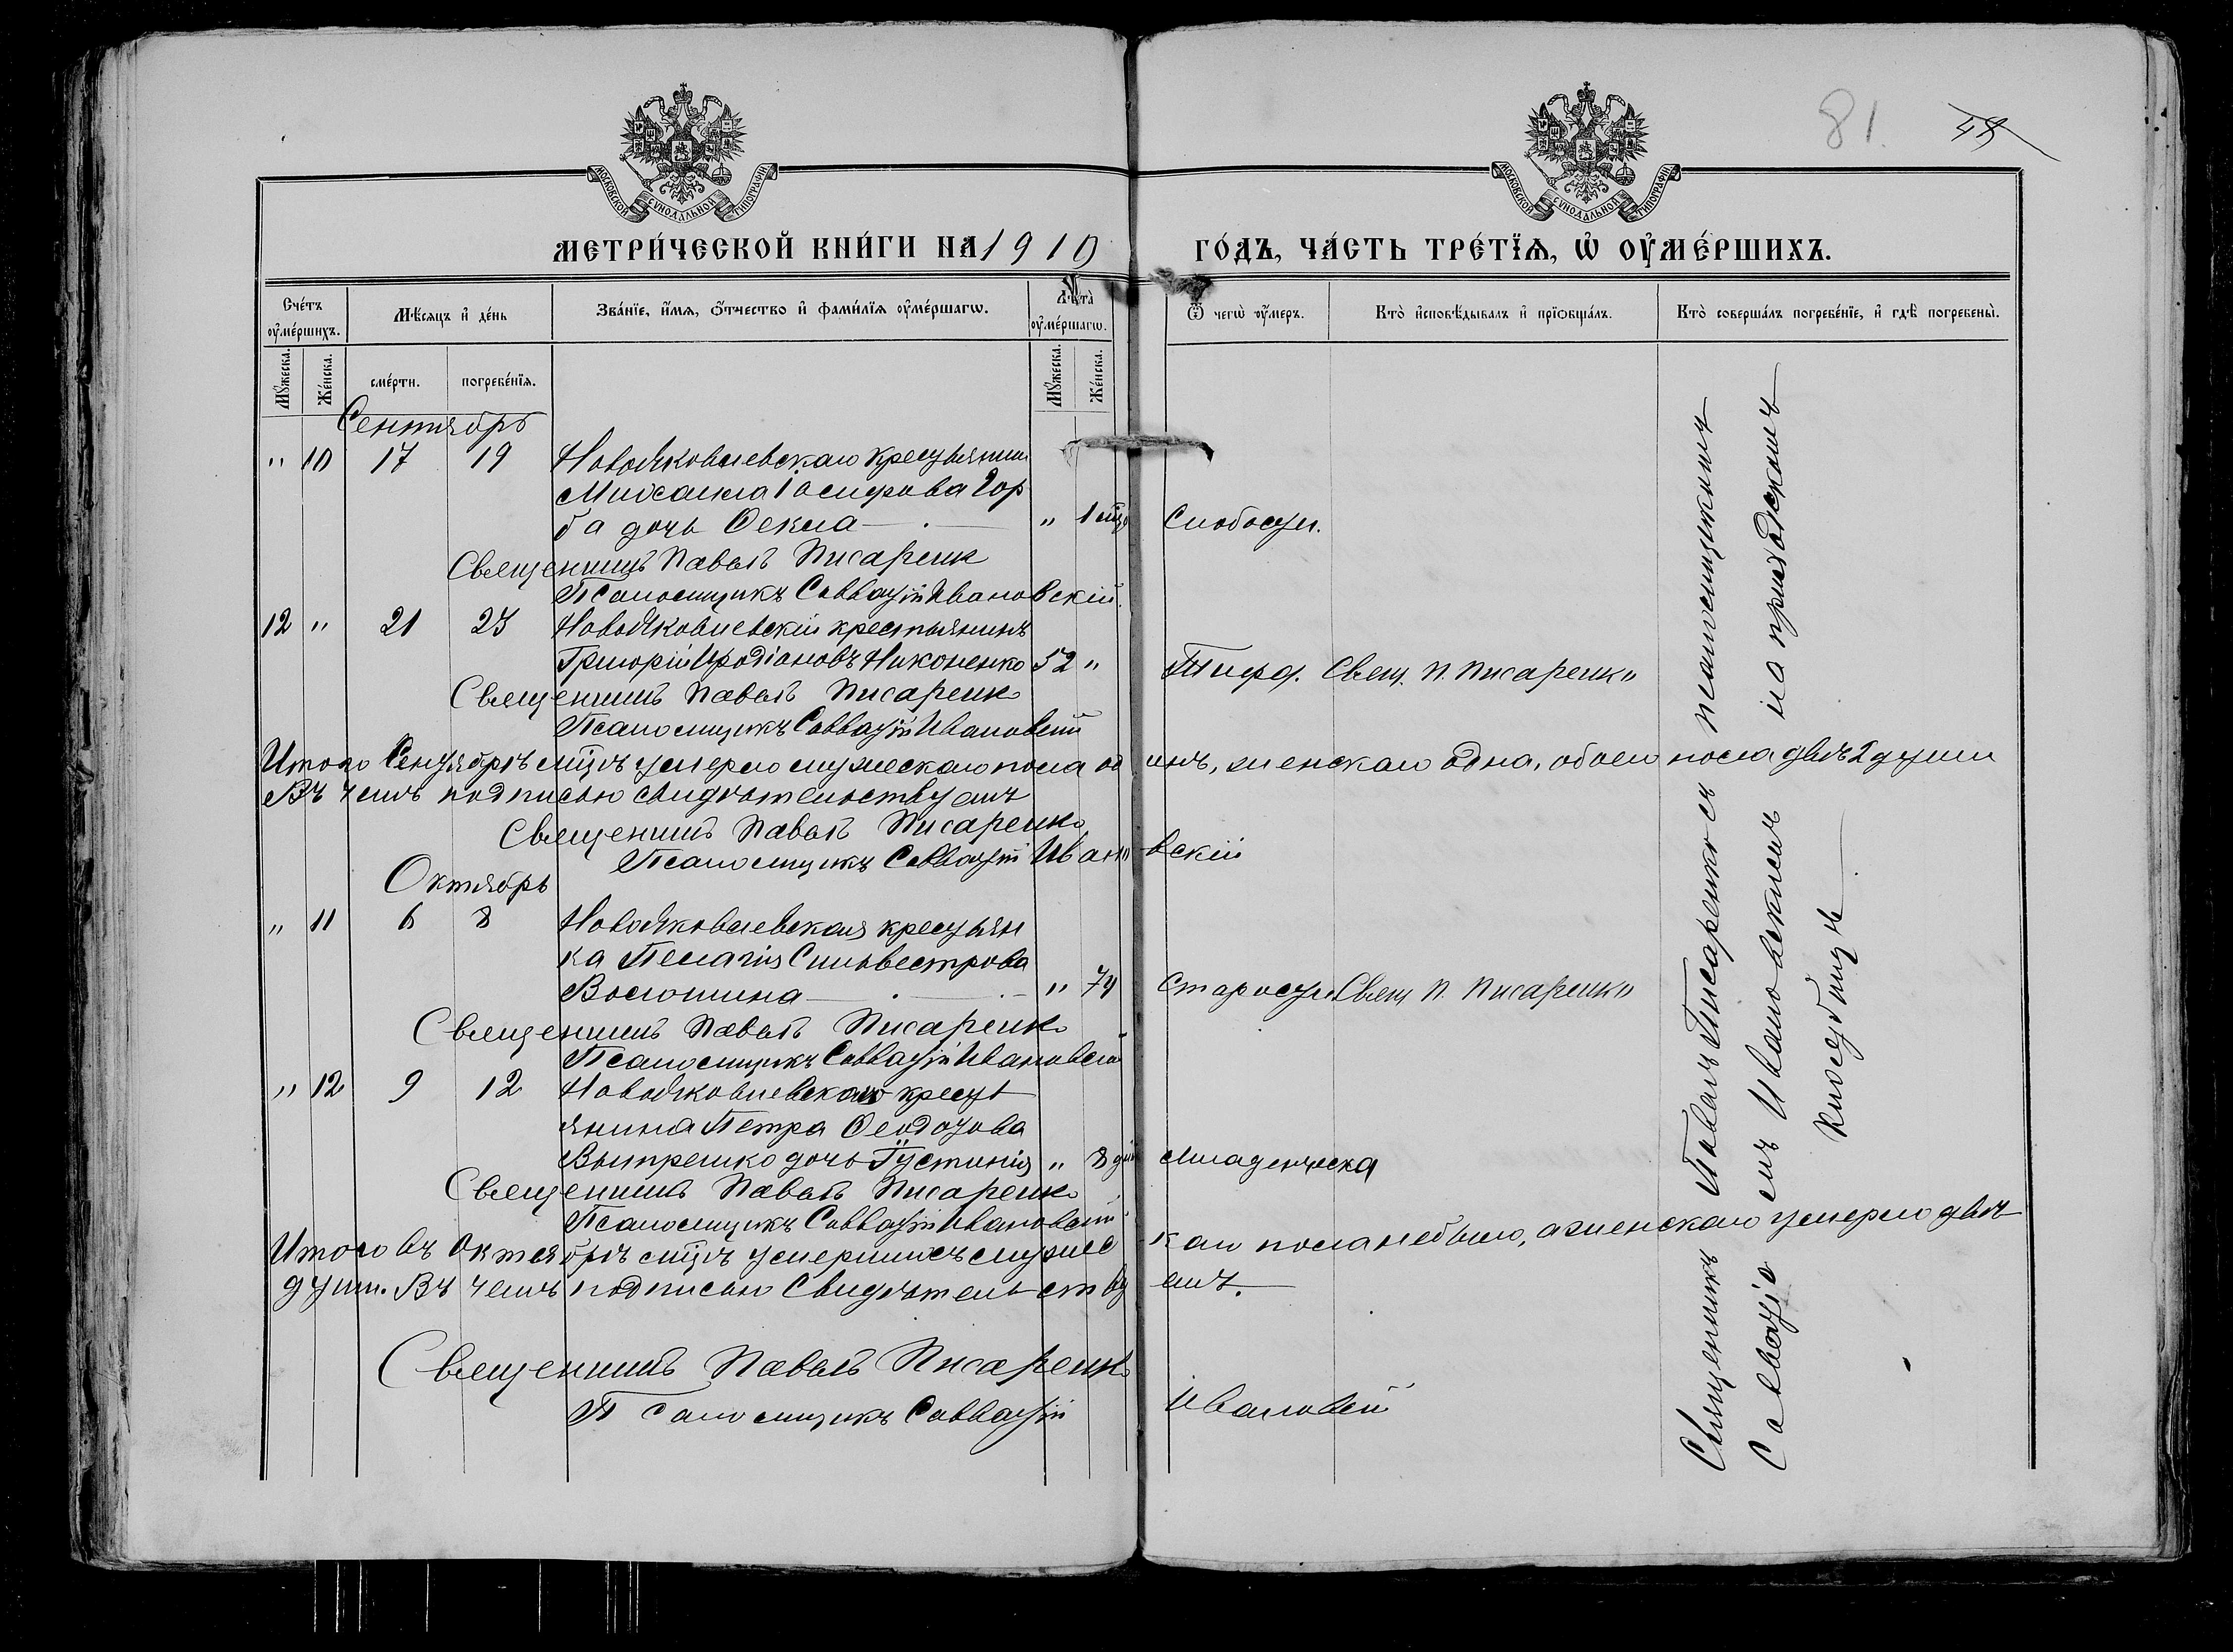 81. 48
МОСКОВСКОЙ СѴНОДАЛЬНОЙ ТИПОГРАФІИ
МОСКОВСКОЙ СѴНОДАЛЬНОЙ ТИПОГРАФІИ
МЕТРИ́ЧЕСКОЙ КНИ́ГИ НА 1910 ГО́ДЪ, ЧА́СТЬ ТРЕ́ТЇѦ, Ѡ҆ ОУ҆МЕ́РШИХЪ.
Сче́тъ оу҆ме́ршихъ. Мѣ́сяцъ и҆ де́нь Зва́нїе, и҆́мѧ, ѻ҆́тчество и҆ фами́лїѧ оу҆ме́ршагѡ. Лѣ́та̀ оу҆ме́ршагѡ. Ѿ чегѡ̀ оу҆́меръ. Кто̀ и҆сповѣ́дывалъ и҆ прїѡбща́лъ. Кто̀ соверша́лъ погребе́нїе, и҆ гдѣ̀ погребены̀.
Мꙋ́жеска. Же́нска. сме́рти. погребе́нїѧ. Мꙋ́жеска. Же́нска.
Сентябрь
" 10 17 19 Новояковлевскаго крестьянина
Михаила Іосифова Гор
ба дочь Фекла " 1 мѣс. Слабости.
Священникъ Павелъ Писаренко
Псаломщикъ Савватій Ивановскій.
12 " 21 23 Новояковлевскій крестьянинъ
Григорій Иродіоновъ Никоненко 52 " Тифа. Свящ. П. Писаренко
Священникъ Павелъ Писаренко
Псаломщикъ Савватій Ивановскій
Итого Сентябрѣ мцѣ умерло мужескаго пола одинъ, женскаго одна, обоего пола двѣ 2 души
Въ чемъ подписью свидѣтельствуемъ
Священникъ Павелъ Писаренко
Псаломщикъ Савватій Ивановскій
Октябрь
" 11 6 8 Новояковлевская крестьян
ка Пелагія Сильвестрова
Волошина " 74 Старости Свящ П. Писаренко
Священникъ Павелъ Писаренко
Псаломщикъ Савватій Ивановскій
" 12 9 12 Новояковлевскаго крест
янина Петра Феодотова
дочь Густинія " 8 дній Младенческа
Священникъ Павелъ Писаренко
Псаломщикъ Савватій Ивановскій
Итого въ Октябрѣ мцѣ умершихъ мужескаго пола не было, а женскаго умерло двѣ
души. Въ чемъ подписью Свидѣтельствуемъ.
Священникъ Павелъ Писаренко
Псаломщикъ Савватій Ивановскій
Священникъ Павелъ Писаренко съ псаломщикомъ
Савватіемъ Ивановскимъ на приходскомъ
кладбищѣ